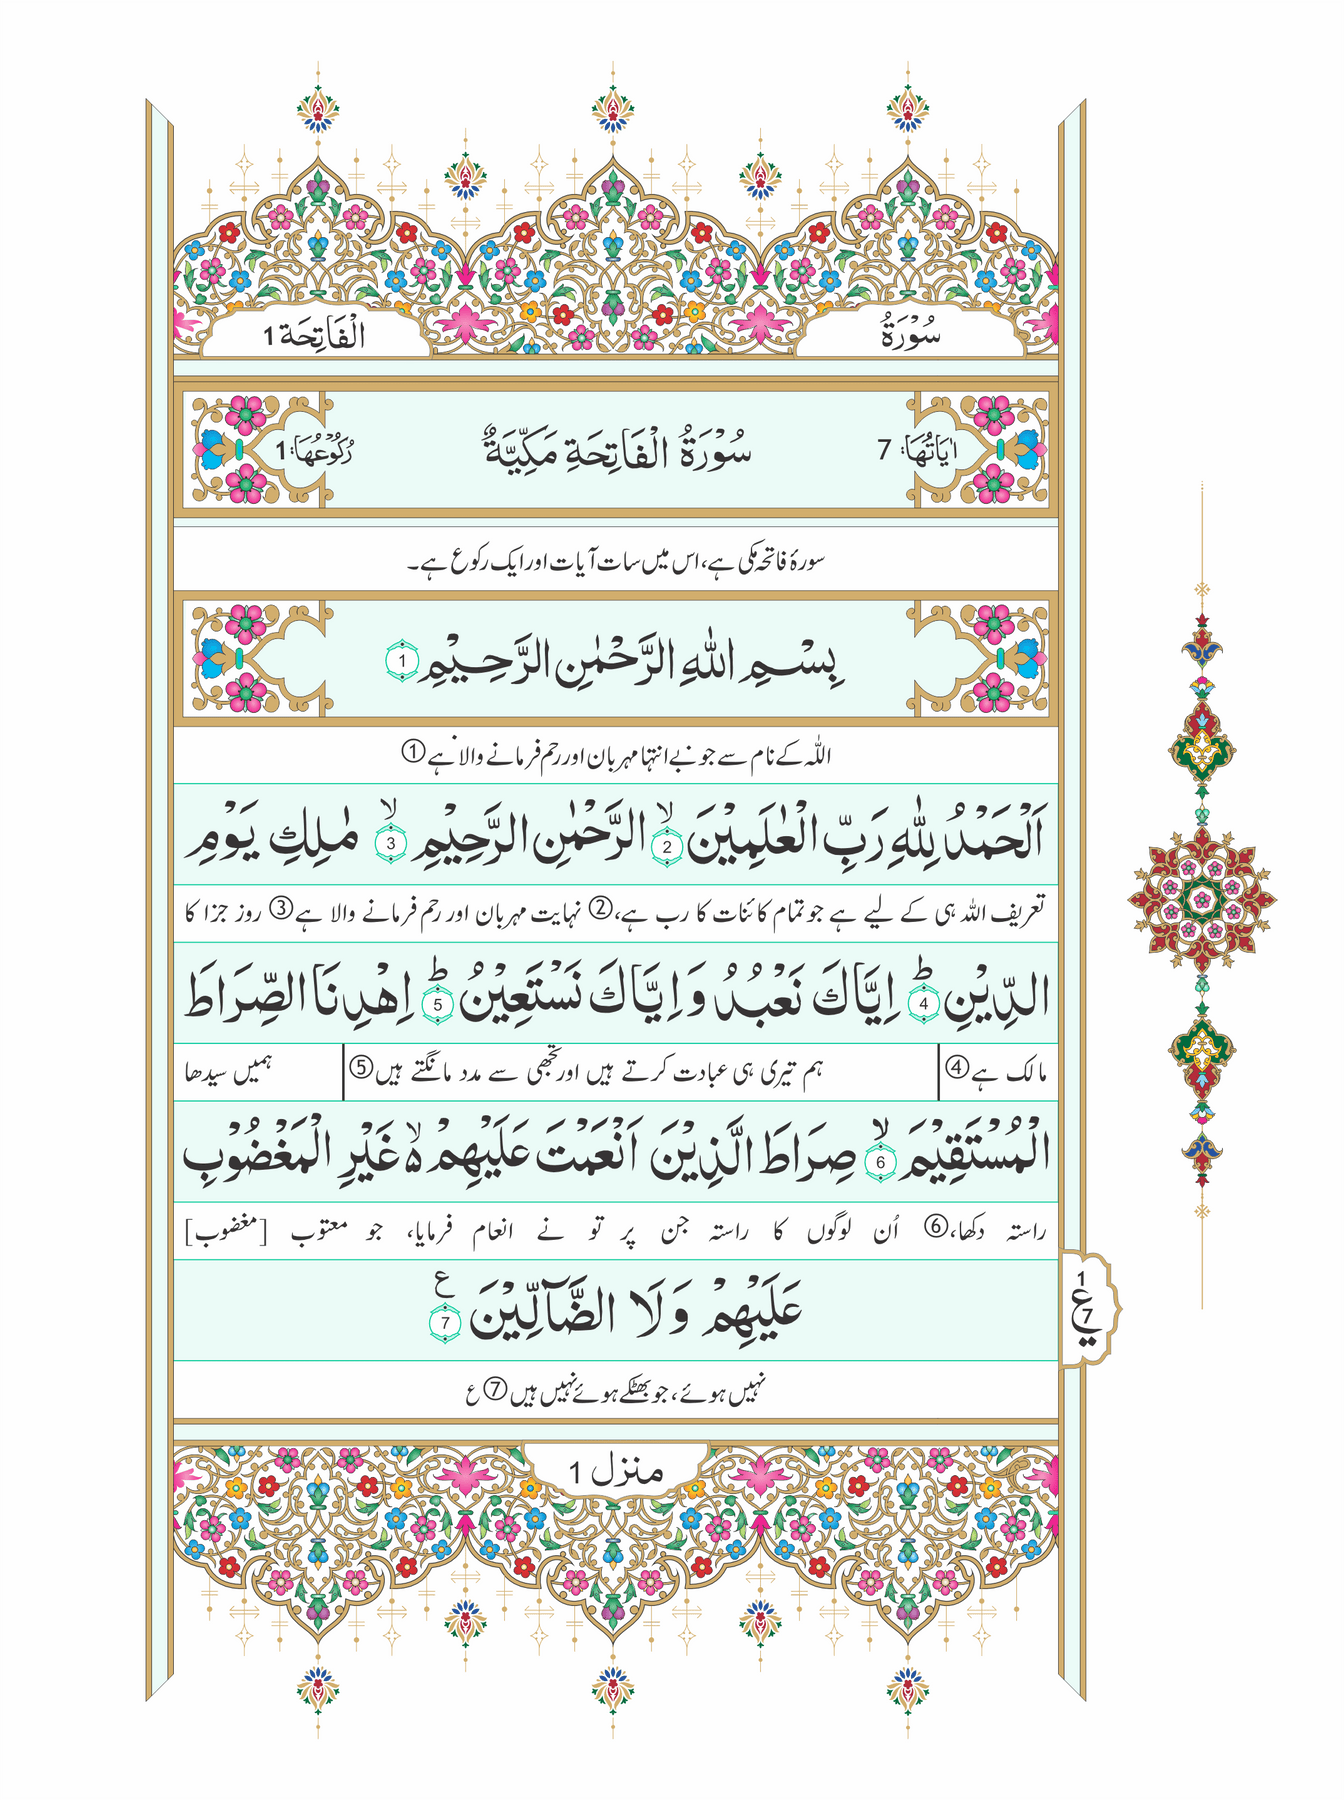 سُوْرَةُ الْفَاتِحَة 1
اٰيَاتُهَا: 7 سُوْرَةُ الْفَاتِحَةِ مَكِّيَّةٌ رُكُوْعُهَا: 1
سورۂ فاتحہ مکی ہے، اس میں سات آیات اور ایک رکوع ہے۔
بِسْمِ اللّٰهِ الرَّحْمٰنِ الرَّحِيْمِ 1
اللّٰہ کے نام سے جو بے انتہا مہربان اور رحم فرمانے والا ہے ①
اَلْحَمْدُ لِلّٰهِ رَبِّ الْعٰلَمِيْنَ ۙ 2 الرَّحْمٰنِ الرَّحِيْمِ ۙ 3 مٰلِكِ يَوْمِ
تعریف اللہ ہی کے لیے ہے جو تمام کائنات کا رب ہے، ② نہایت مہربان اور رحم فرمانے والا ہے ③ روز جزا کا
الدِّيْنِ ؕ 4 اِيَّاكَ نَعْبُدُ وَ اِيَّاكَ نَسْتَعِيْنُ ؕ 5 اِهْدِنَا الصِّرَاطَ
مالک ہے ④ ہم تیری ہی عبادت کرتے ہیں اور تجھی سے مدد مانگتے ہیں ⑤ ہمیں سیدھا
الْمُسْتَقِيْمَ ۙ 6 صِرَاطَ الَّذِيْنَ اَنْعَمْتَ عَلَيْهِمْ ۙ۬ غَيْرِ الْمَغْضُوْبِ
راستہ دکھا، ⑥ اُن لوگوں کا راستہ جن پر تو نے انعام فرمایا، جو معتوب [مغضوب]
عَلَيْهِمْ وَ لَا الضَّآلِّيْنَ ع 7
1 ع 7
نہیں ہوئے، جو بھٹکے ہوئے نہیں ہیں ⑦ ع
منزل 1